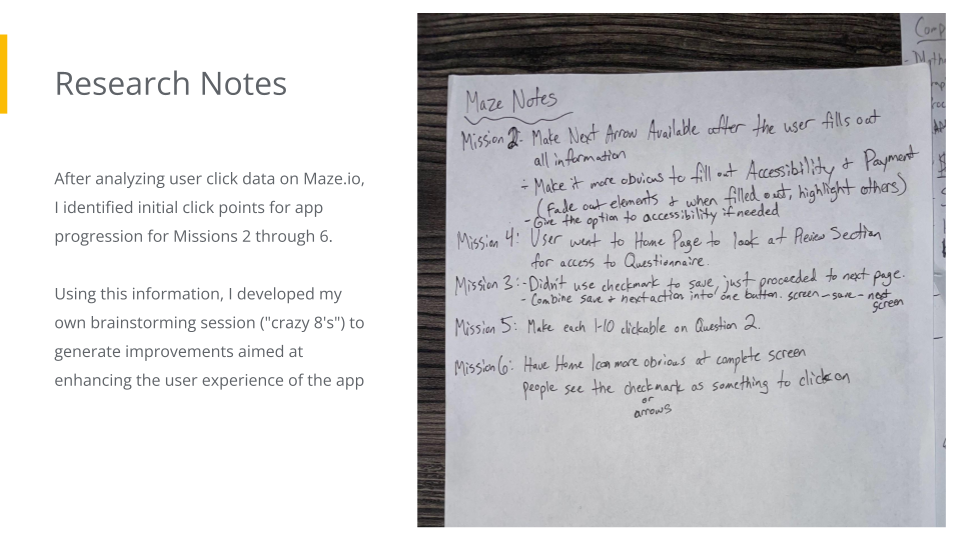 Research Notes
After analyzing user click data on Maze.io,
I identified initial click points for app
progression for Missions 2 through 6.
Using this information, I developed my
own brainstorming session ("crazy 8's") to
generate improvements aimed at
enhancing the user experience of the app
Maze Notes
Mission 2: Make Next Arrow Available after the user fills out
all information
- Make it more obvious to fill out Accessibility & Payment
(Fade out elements & when filled out, highlight others)
- Give the option to accessibility if needed
Mission 4: User went to Home Page to look at Review Section
for access to Questionnaire.
Mission 3: - Didn't use checkmark to save, just proceeded to next page.
- Combine save & next action into one button. screen - save - next
screen
Mission 5: Make each 1-10 clickable on Question 2.
Mission 6: Have Home Icon more obvious at complete screen
people see the checkmark as something to click on
or
arrows